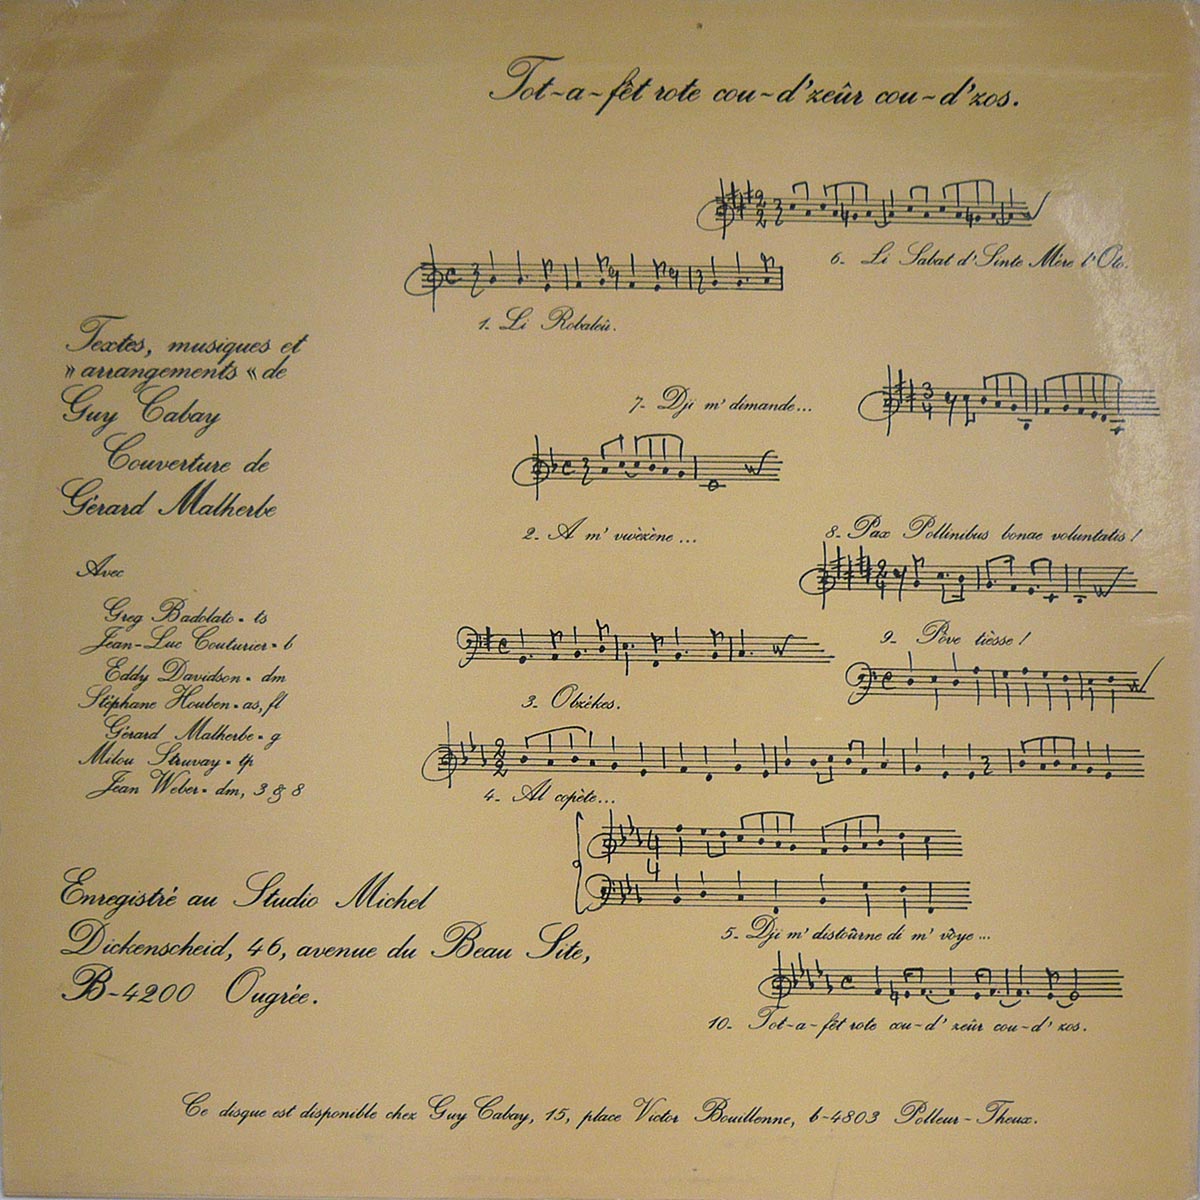 Tot-a-fêt rote cou-d'zeûr cou-d'zos.
Textes, musiques et
» arrangements « de
Guy Cabay
Couverture de
Gérard Malherbe
Avec
Greg Badolato - ts
Jean-Luc Couturier - b
Eddy Davidson - dm
Stéphane Houben - as, fl
Gérard Malherbe - g
Milou Struvay - tp
Jean Weber - dm, 3 & 8
Enregistré au Studio Michel
Dickenscheid, 46, avenue du Beau Site,
B-4200 Ougrée.
1. Li Robaleû.
2. A m' vwèzène ...
3. Obzékes.
4. Al copète...
5. Dji m' distoûrne di m' vôye ...
6. Li Sabat d' Sinte Mère l'Oto.
7. Dji m' dimande...
8. Pax Pollinibus bonae voluntatis !
9. Pôve tièsse !
10. Tot-a-fêt rote cou-d' zeûr cou-d' zos.
Ce disque est disponible chez Guy Cabay, 15, place Victor Bouillenne, b-4803 Polleur-Theux.